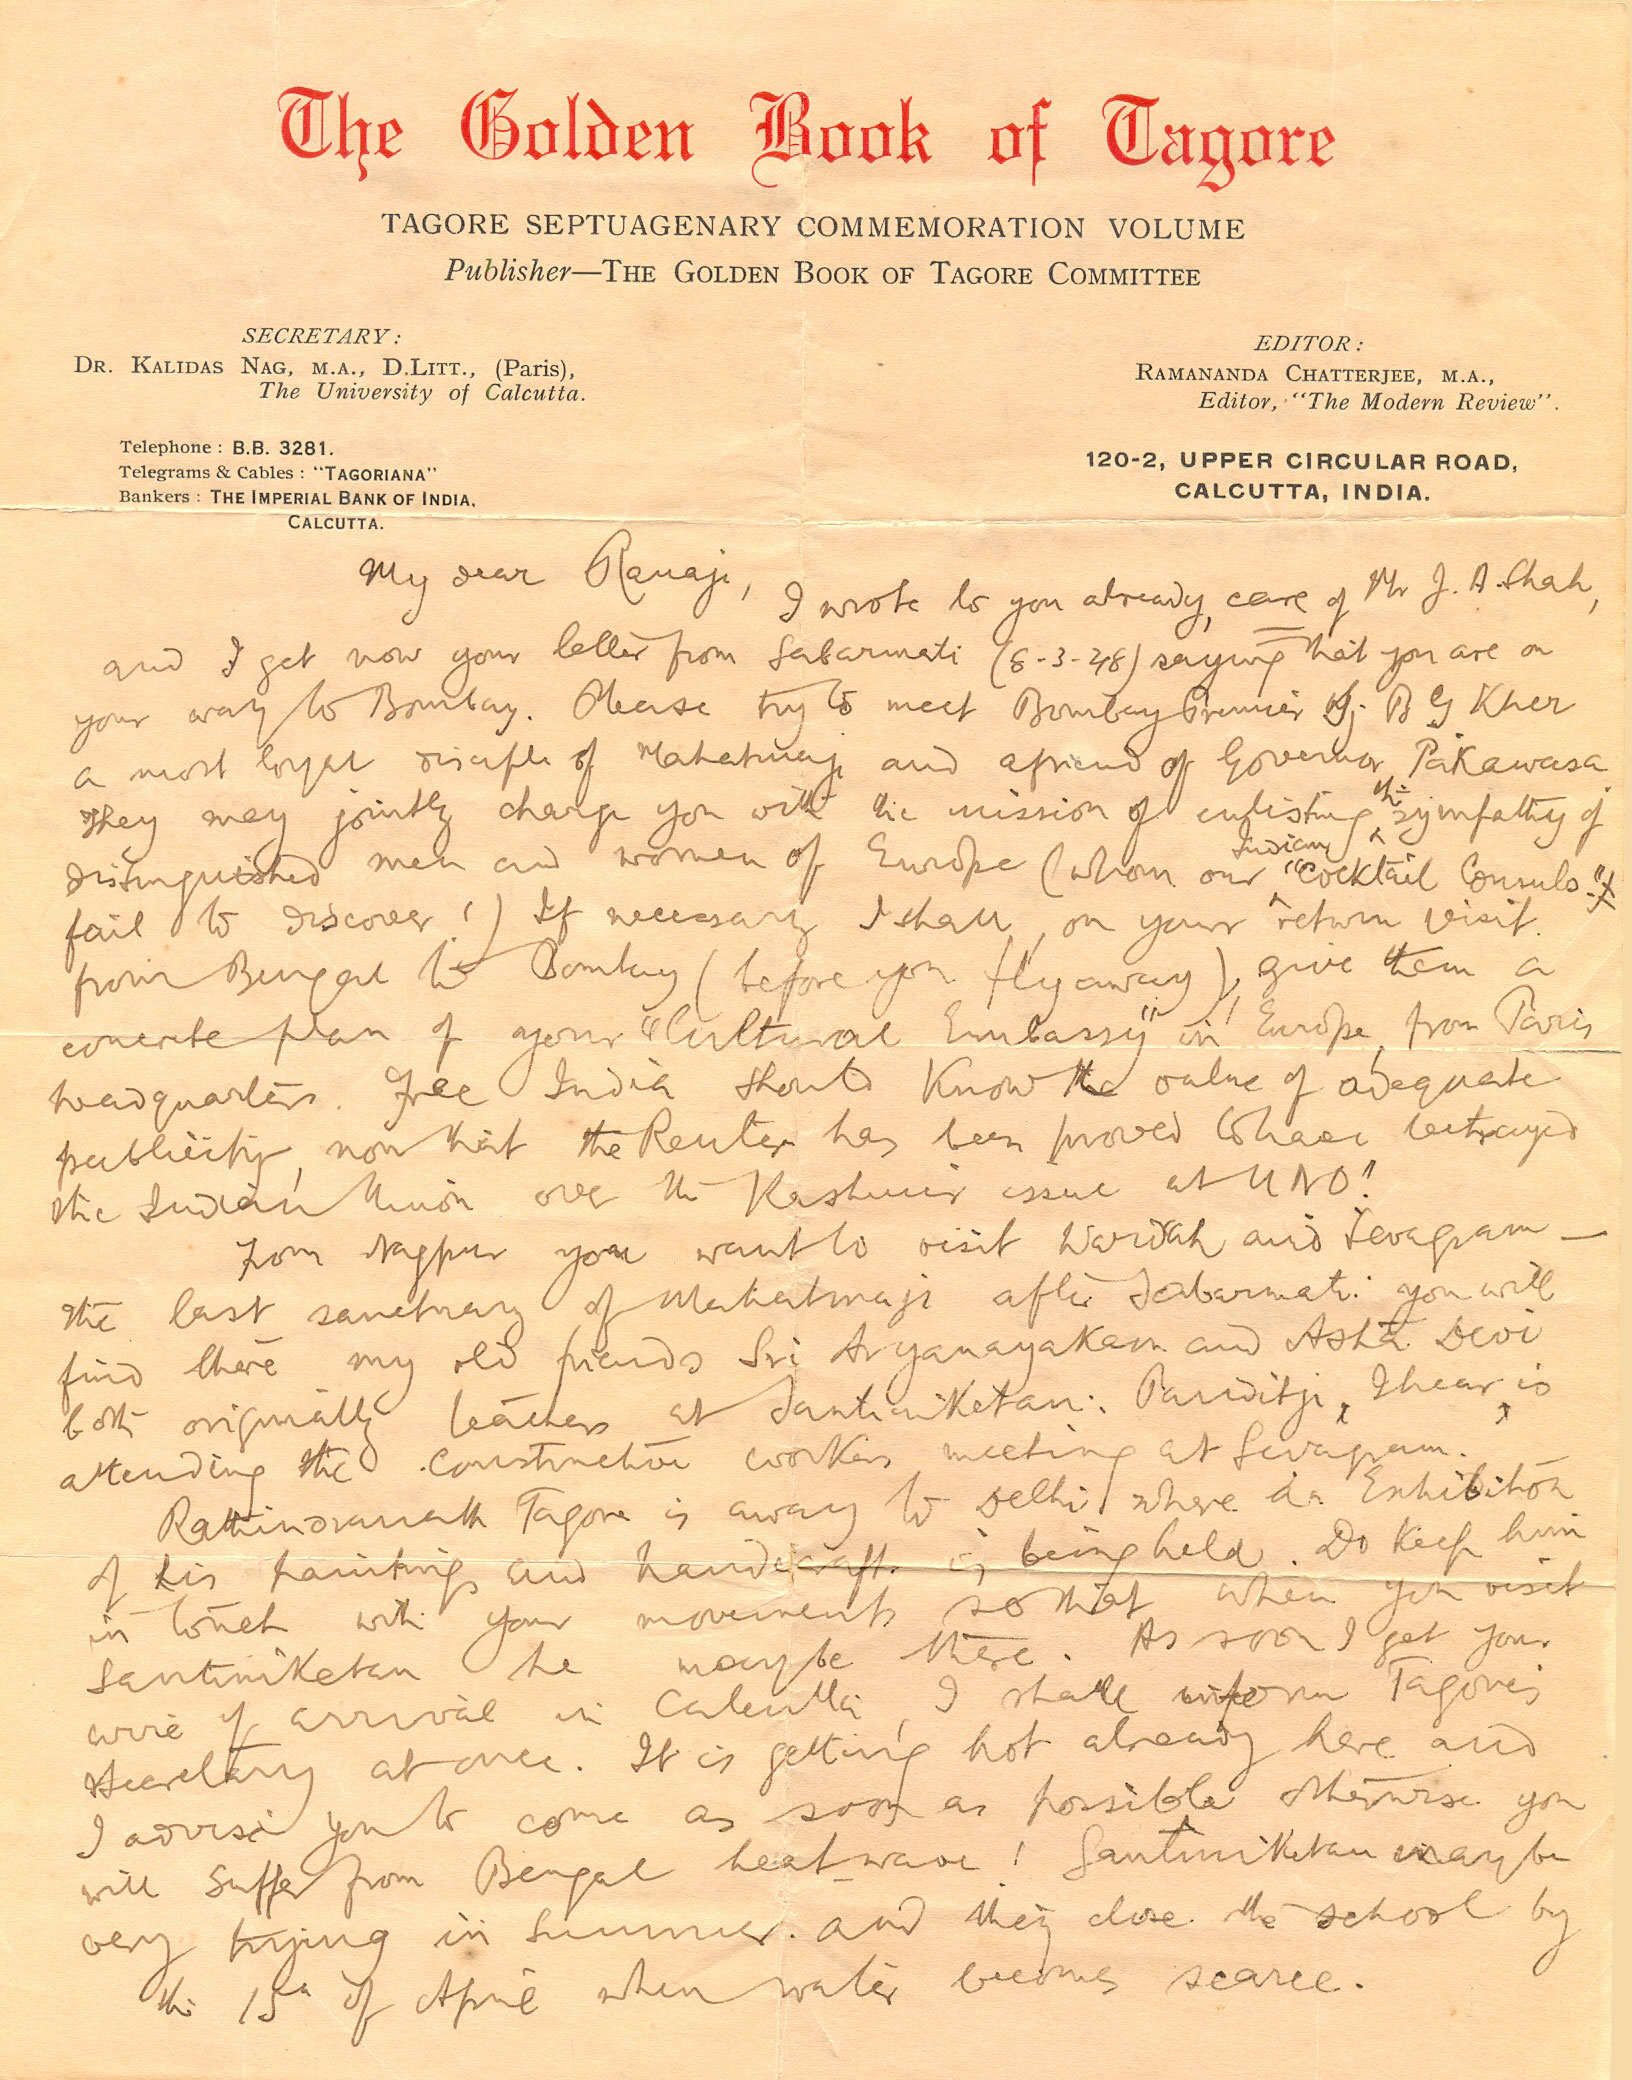 The Golden Book of Tagore
TAGORE SEPTUAGENARY COMMEMORATION VOLUME
Publisher—THE GOLDEN BOOK OF TAGORE COMMITTEE
SECRETARY:
DR. KALIDAS NAG, M.A., D.LITT., (Paris),
The University of Calcutta.
Telephone : B.B. 3281.
Telegrams & Cables : "TAGORIANA"
Bankers : THE IMPERIAL BANK OF INDIA,
CALCUTTA.
EDITOR:
RAMANANDA CHATTERJEE, M.A.,
Editor, "The Modern Review".
120-2, UPPER CIRCULAR ROAD,
CALCUTTA, INDIA.
My dear Ranaji,
I wrote to you already, care of Mr J. A. Shah,
and I get now your letter from Sabarmati (8-3-48) saying that you are on
your way to Bombay. Please try to meet Bombay Premier Sj. B G Kher
a most loyal disciple of Mahatmaji and a friend of Governor Pakawasa
They may jointly charge you with the mission of enlisting the sympathy of
distinguished men and women of Europe (whom our Indian "Cocktail Consuls"
fail to discover!) If necessary I shall, on your return visit
from Bengal to Bombay (before you fly away), give them a
concrete plan of your "Cultural Embassy" in Europe, from Paris
headquarters. Free India should know the value of adequate
publicity, now that the Reuter has been proved to have betrayed
the Indian Union over the Kashmir issue at UNO!
From Nagpur you want to visit Wardah and Sevagram —
the last sanctuary of Mahatmaji after Sabarmati. you will
find there my old friends Sri Aryanayakam and Asha Devi
both originally teachers at Santiniketan. Panditji, I hear, is
attending the constructive workers meeting at Sevagram.
Rathindranath Tagore is away to Delhi where an Exhibition
of his paintings and handicrafts is being held. Do keep him
in touch with your movements so that when you visit
Santiniketan he maybe there. As soon I get your
wire of arrival in Calcutta, I shall inform Tagore's
Secretary at once. It is getting hot already here and
I advise you to come as soon as possible otherwise you
will suffer from Bengal heat-wave! Santiniketan maybe
very trying in Summer. and they close the school by
the 15th of April when water becomes scarce.